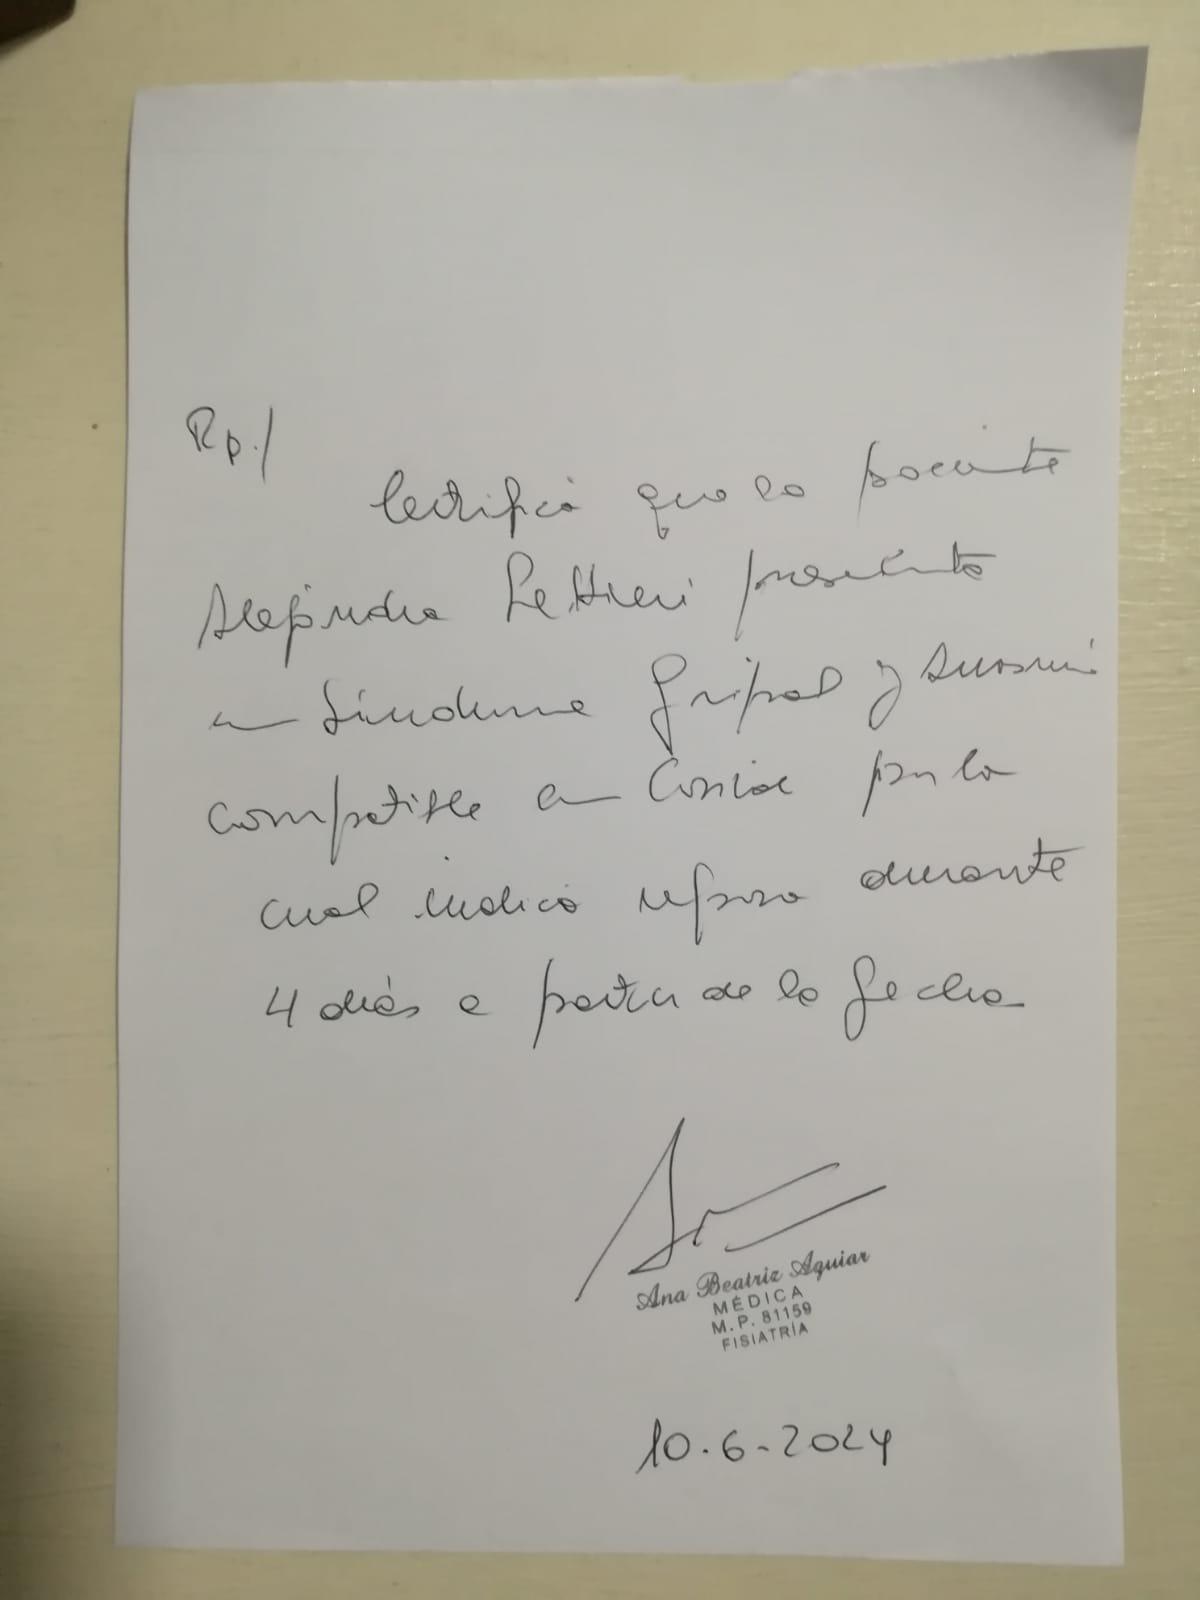 Rp./
Certifico que la paciente
Alejandra Lettieri presenta
un Síndrome gripal y
compatible con para lo
cual indico reposo durante
4 días a partir de la fecha
Ana Beatriz Aguiar
MÉDICA
M.P. 81159
FISIATRÍA
10.6-2024